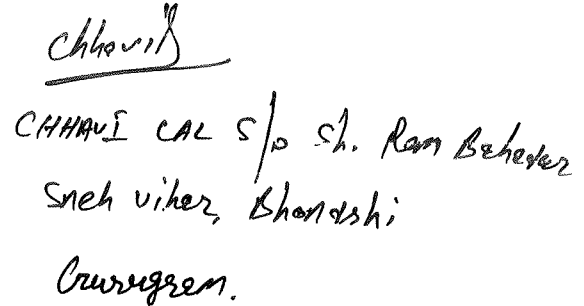 Chhavil
CHHAVI LAL S/o Sh. Ram Bahadar
Sneh vihar, Bhondshi
Gurugram.